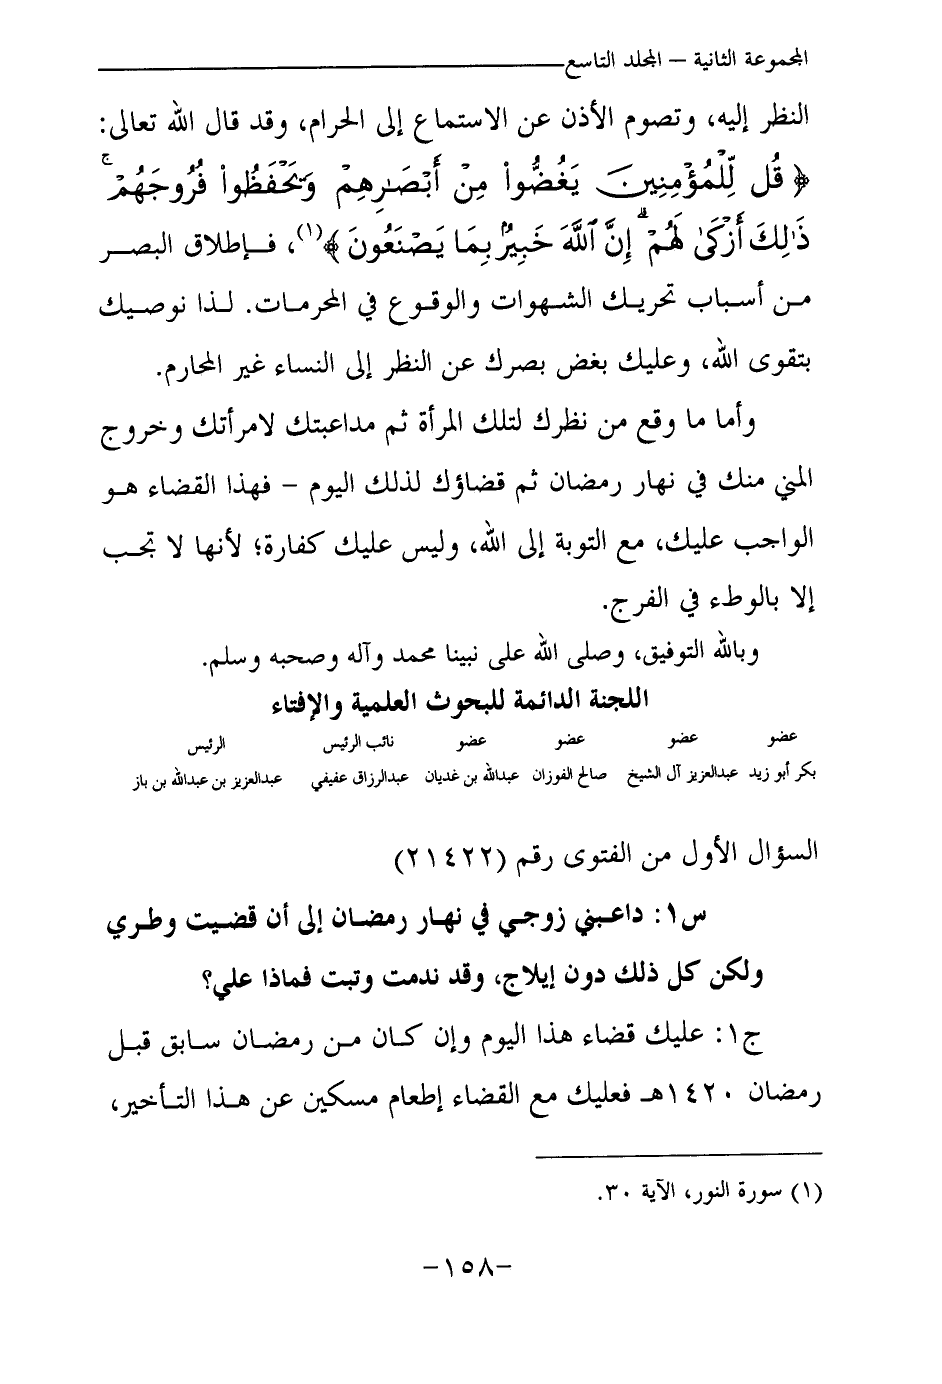 المجموعة الثانية – المجلد التاسع
النظر إليه، وتصوم الأذن عن الاستماع إلى الحرام، وقد قال الله تعالى:
﴿ قُل لِّلْمُؤْمِنِينَ يَغُضُّوا۟ مِنْ أَبْصَـٰرِهِمْ وَيَحْفَظُوا۟ فُرُوجَهُمْ ۚ
ذَٰلِكَ أَزْكَىٰ لَهُمْ ۗ إِنَّ ٱللَّهَ خَبِيرٌۢ بِمَا يَصْنَعُونَ ﴾(١)، فـإطلاق البصـر
مـن أسـباب تحريـك الشـهوات والوقـوع في المحرمـات. لـذا نوصـيك
بتقوى الله، وعليك بغض بصرك عن النظر إلى النساء غير المحارم.
وأما ما وقع من نظرك لتلك المرأة ثم مداعبتك لامرأتك وخروج
المني منك في نهار رمضان ثم قضاؤك لذلك اليوم – فهذا القضاء هـو
الواجب عليك، مع التوبة إلى الله، وليس عليك كفارة؛ لأنها لا تجـب
إلا بالوطء في الفرج.
وبالله التوفيق، وصلى الله على نبينا محمد وآله وصحبه وسلم.
اللجنة الدائمة للبحوث العلمية والإفتاء
عضو عضو عضو عضو نائب الرئيس الرئيس
بكر أبو زيد عبدالعزيز آل الشيخ صالح الفوزان عبدالله بن غديان عبدالرزاق عفيفي عبدالعزيز بن عبدالله بن باز
السؤال الأول من الفتوى رقم (٢١٤٢٢)
س١: داعبني زوجـي في نهار رمضـان إلى أن قضـيت وطـري
ولكن كل ذلك دون إيلاج، وقد ندمت وتبت فماذا علي؟
ج١: عليك قضاء هذا اليوم وإن كـان مـن رمضـان سـابق قبـل
رمضان ١٤٢٠هـ فعليك مع القضاء إطعام مسكين عن هـذا التـأخير،
(١) سورة النور، الآية ٣٠.
–١٥٨–